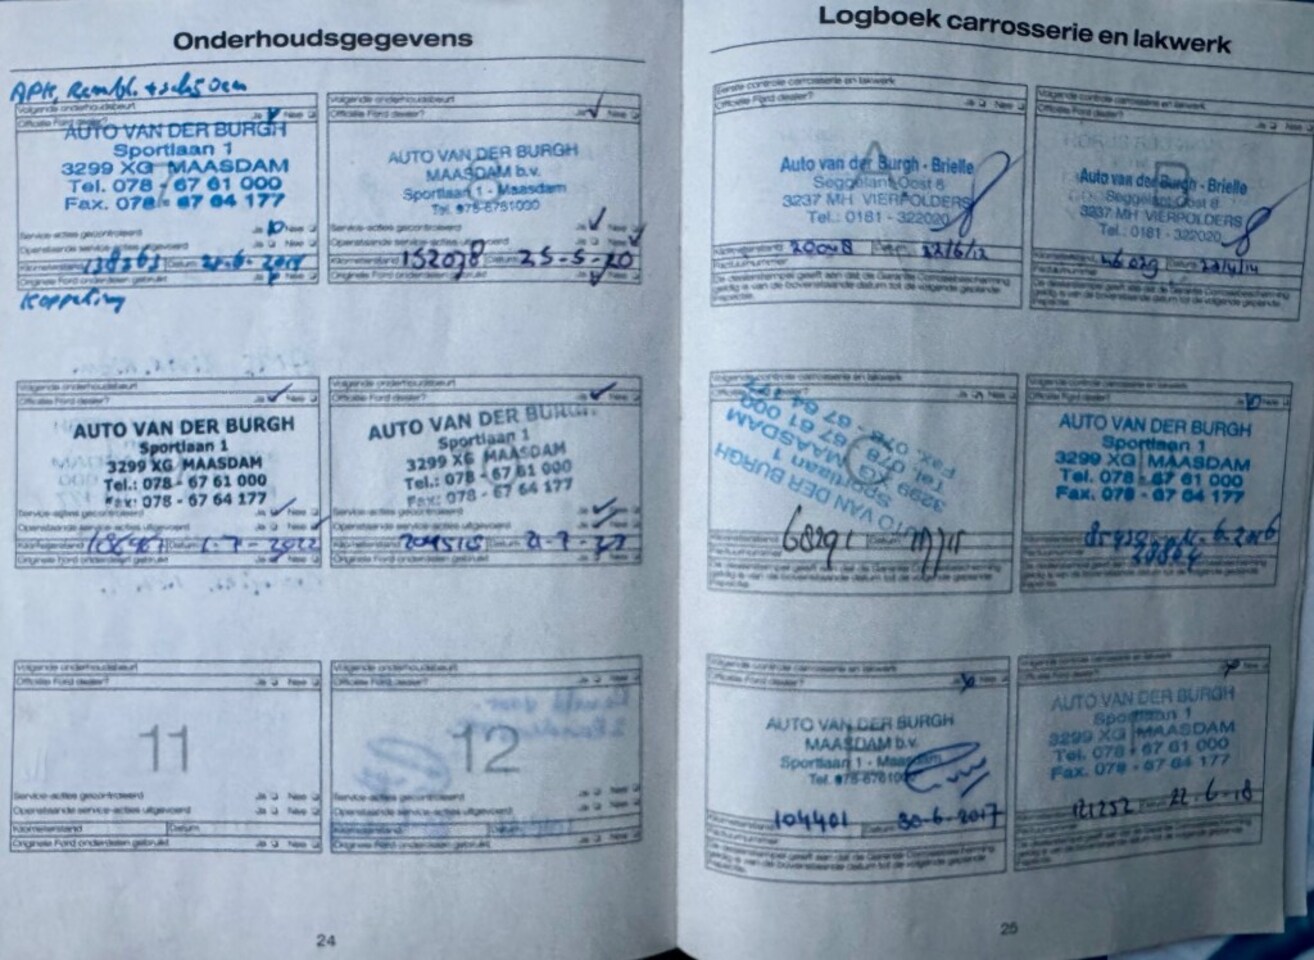 Onderhoudsgegevens
APK, Remvl. +
Volgende onderhoudsbeurt
Officiële Ford dealer? Ja Nee
AUTO VAN DER BURGH
Sportlaan 1
3299 XG MAASDAM
Tel. 078 - 67 61 000
Fax. 078 - 67 64 177
Service-acties gecontroleerd Ja Nee
Openstaande service-acties uitgevoerd Ja Nee
Kilometerstand Datum
Originele Ford onderdelen gebruikt Ja Nee
Koppeling
Volgende onderhoudsbeurt
Officiële Ford dealer? Ja Nee
AUTO VAN DER BURGH
MAASDAM b.v.
Sportlaan 1 - Maasdam
Tel. 078-6761000
Service-acties gecontroleerd Ja Nee
Openstaande service-acties uitgevoerd
Kilometerstand 152078 Datum 25-5-20
Originele Ford onderdelen gebruikt Ja Nee
Volgende onderhoudsbeurt
Officiële Ford dealer? Ja Nee
AUTO VAN DER BURGH
Sportlaan 1
3299 XG MAASDAM
Tel.: 078 - 67 61 000
Fax: 078 - 67 64 177
Service-acties gecontroleerd Ja Nee
Openstaande service-acties uitgevoerd Ja Nee
Kilometerstand Datum 1-7-2022
Originele Ford onderdelen gebruikt Ja Nee
Volgende onderhoudsbeurt
Officiële Ford dealer? Ja Nee
AUTO VAN DER BURGH
Sportlaan 1
3299 XG MAASDAM
Tel.: 078 - 67 61 000
Fax: 078 - 67 64 177
Service-acties gecontroleerd Ja Nee
Openstaande service-acties uitgevoerd Ja Nee
Kilometerstand Datum
Originele Ford onderdelen gebruikt Ja Nee
Volgende onderhoudsbeurt
Officiële Ford dealer? Ja Nee
11
Service-acties gecontroleerd Ja Nee
Openstaande service-acties uitgevoerd Ja Nee
Kilometerstand Datum
Originele Ford onderdelen gebruikt Ja Nee
Volgende onderhoudsbeurt
Officiële Ford dealer? Ja Nee
12
Service-acties gecontroleerd Ja Nee
Openstaande service-acties uitgevoerd Ja Nee
Kilometerstand Datum
Originele Ford onderdelen gebruikt Ja Nee
24
Logboek carrosserie en lakwerk
Eerste controle carrosserie en lakwerk
Officiële Ford dealer? Ja Nee
A
Auto van der Burgh - Brielle
Seggelant Oost 6
3237 MH VIERPOLDERS
Tel.: 0181 - 322020
Kilometerstand 20048 Datum 22/6/12
Factuurnummer
De dealerstempel geeft aan dat de Garantie Corrosiebescherming
geldig is van de bovenstaande datum tot de volgende geplande
inspectie.
Volgende controle carrosserie en lakwerk
Officiële Ford dealer? Ja Nee
B
Auto van der Burgh - Brielle
Seggelant Oost 8
3237 MH VIERPOLDERS
Tel.: 0181 - 322020
Kilometerstand 46029 Datum
Factuurnummer
De dealerstempel geeft aan dat de Garantie Corrosiebescherming
geldig is van de bovenstaande datum tot de volgende geplande
inspectie.
Volgende controle carrosserie en lakwerk
Ja Nee
C
AUTO VAN DER BURGH
Sportlaan 1
3299 XG MAASDAM
Tel. 078 - 67 61 000
Fax. 078 - 67 64 177
Kilometerstand 68291 Datum
Factuurnummer
De dealerstempel geeft aan dat de Garantie Corrosiebescherming
geldig is van de bovenstaande datum tot de volgende geplande
inspectie.
Volgende controle carrosserie en lakwerk
Officiële Ford dealer? Ja Nee
AUTO VAN DER BURGH
Sportlaan 1
3299 XG MAASDAM
Tel. 078 - 67 61 000
Fax. 078 - 67 64 177
Kilometerstand
Factuurnummer
Volgende controle carrosserie en lakwerk
Officiële Ford dealer? Ja Nee
AUTO VAN DER BURGH
MAASDAM b.v.
Sportlaan 1 - Maasdam
Tel. 078-6761000
Kilometerstand 104401 Datum 30-6-2017
Factuurnummer
De dealerstempel geeft aan dat de Garantie Corrosiebescherming
geldig is van de bovenstaande datum tot de volgende geplande
inspectie.
Volgende controle carrosserie en lakwerk
Officiële Ford dealer? Nee
AUTO VAN DER BURGH
Sportlaan 1
3299 XG MAASDAM
Tel. 078 - 67 61 000
Fax. 078 - 67 64 177
121252 Datum 22-6-18
Factuurnummer
De dealerstempel geeft aan dat de Garantie Corrosiebescherming
geldig is van de bovenstaande datum tot de volgende geplande
inspectie.
25